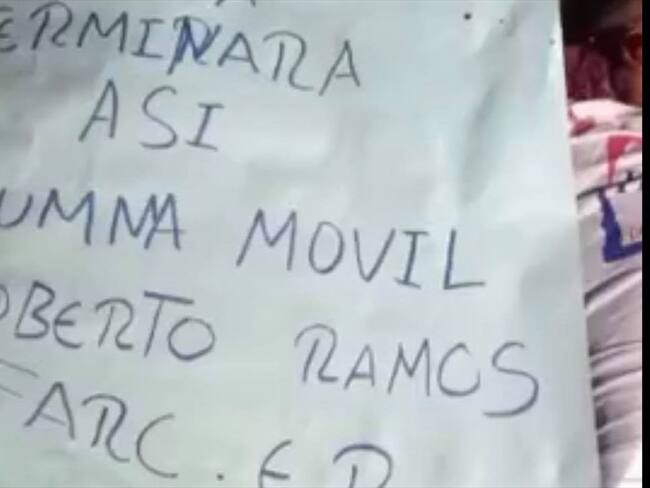 ERMINARA
ASI
UMNA MOVIL
OBERTO RAMOS
FARC. EP